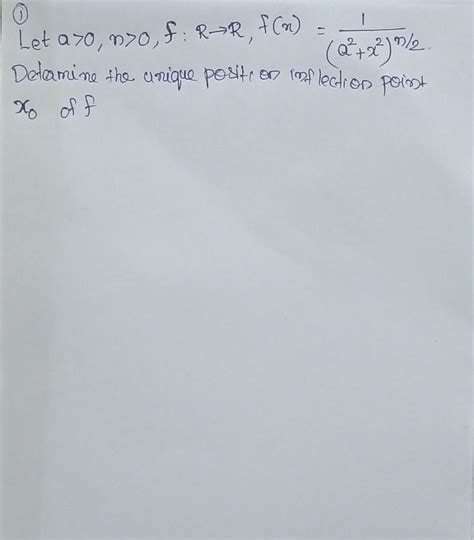 ①
Let a>0, n>0, f: R→R, f(x) = 1/(a²+x²)^n/2.
Detamine the unique position inflection point
x₀ of f